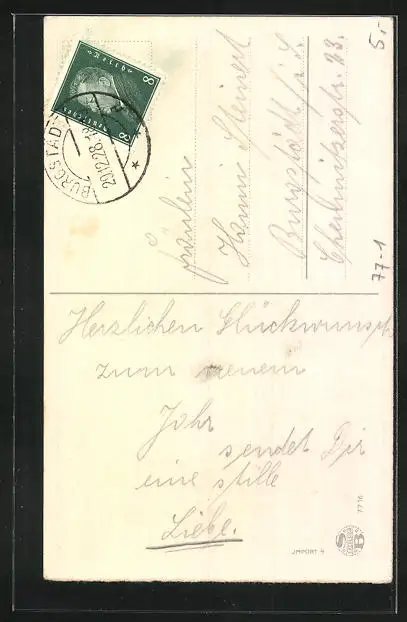 5.-
8
8
BURGSTÄDT
20.12.28.
Fräulein
Hanni Steinert
Burgstädt i. S.
Chemnitzerstr. 23.
77-1
Herzlichen Glückwunsch
zum neuem
Jahr
sendet Dir
eine stille
Liebe.
7716
S B
JMPORT 4